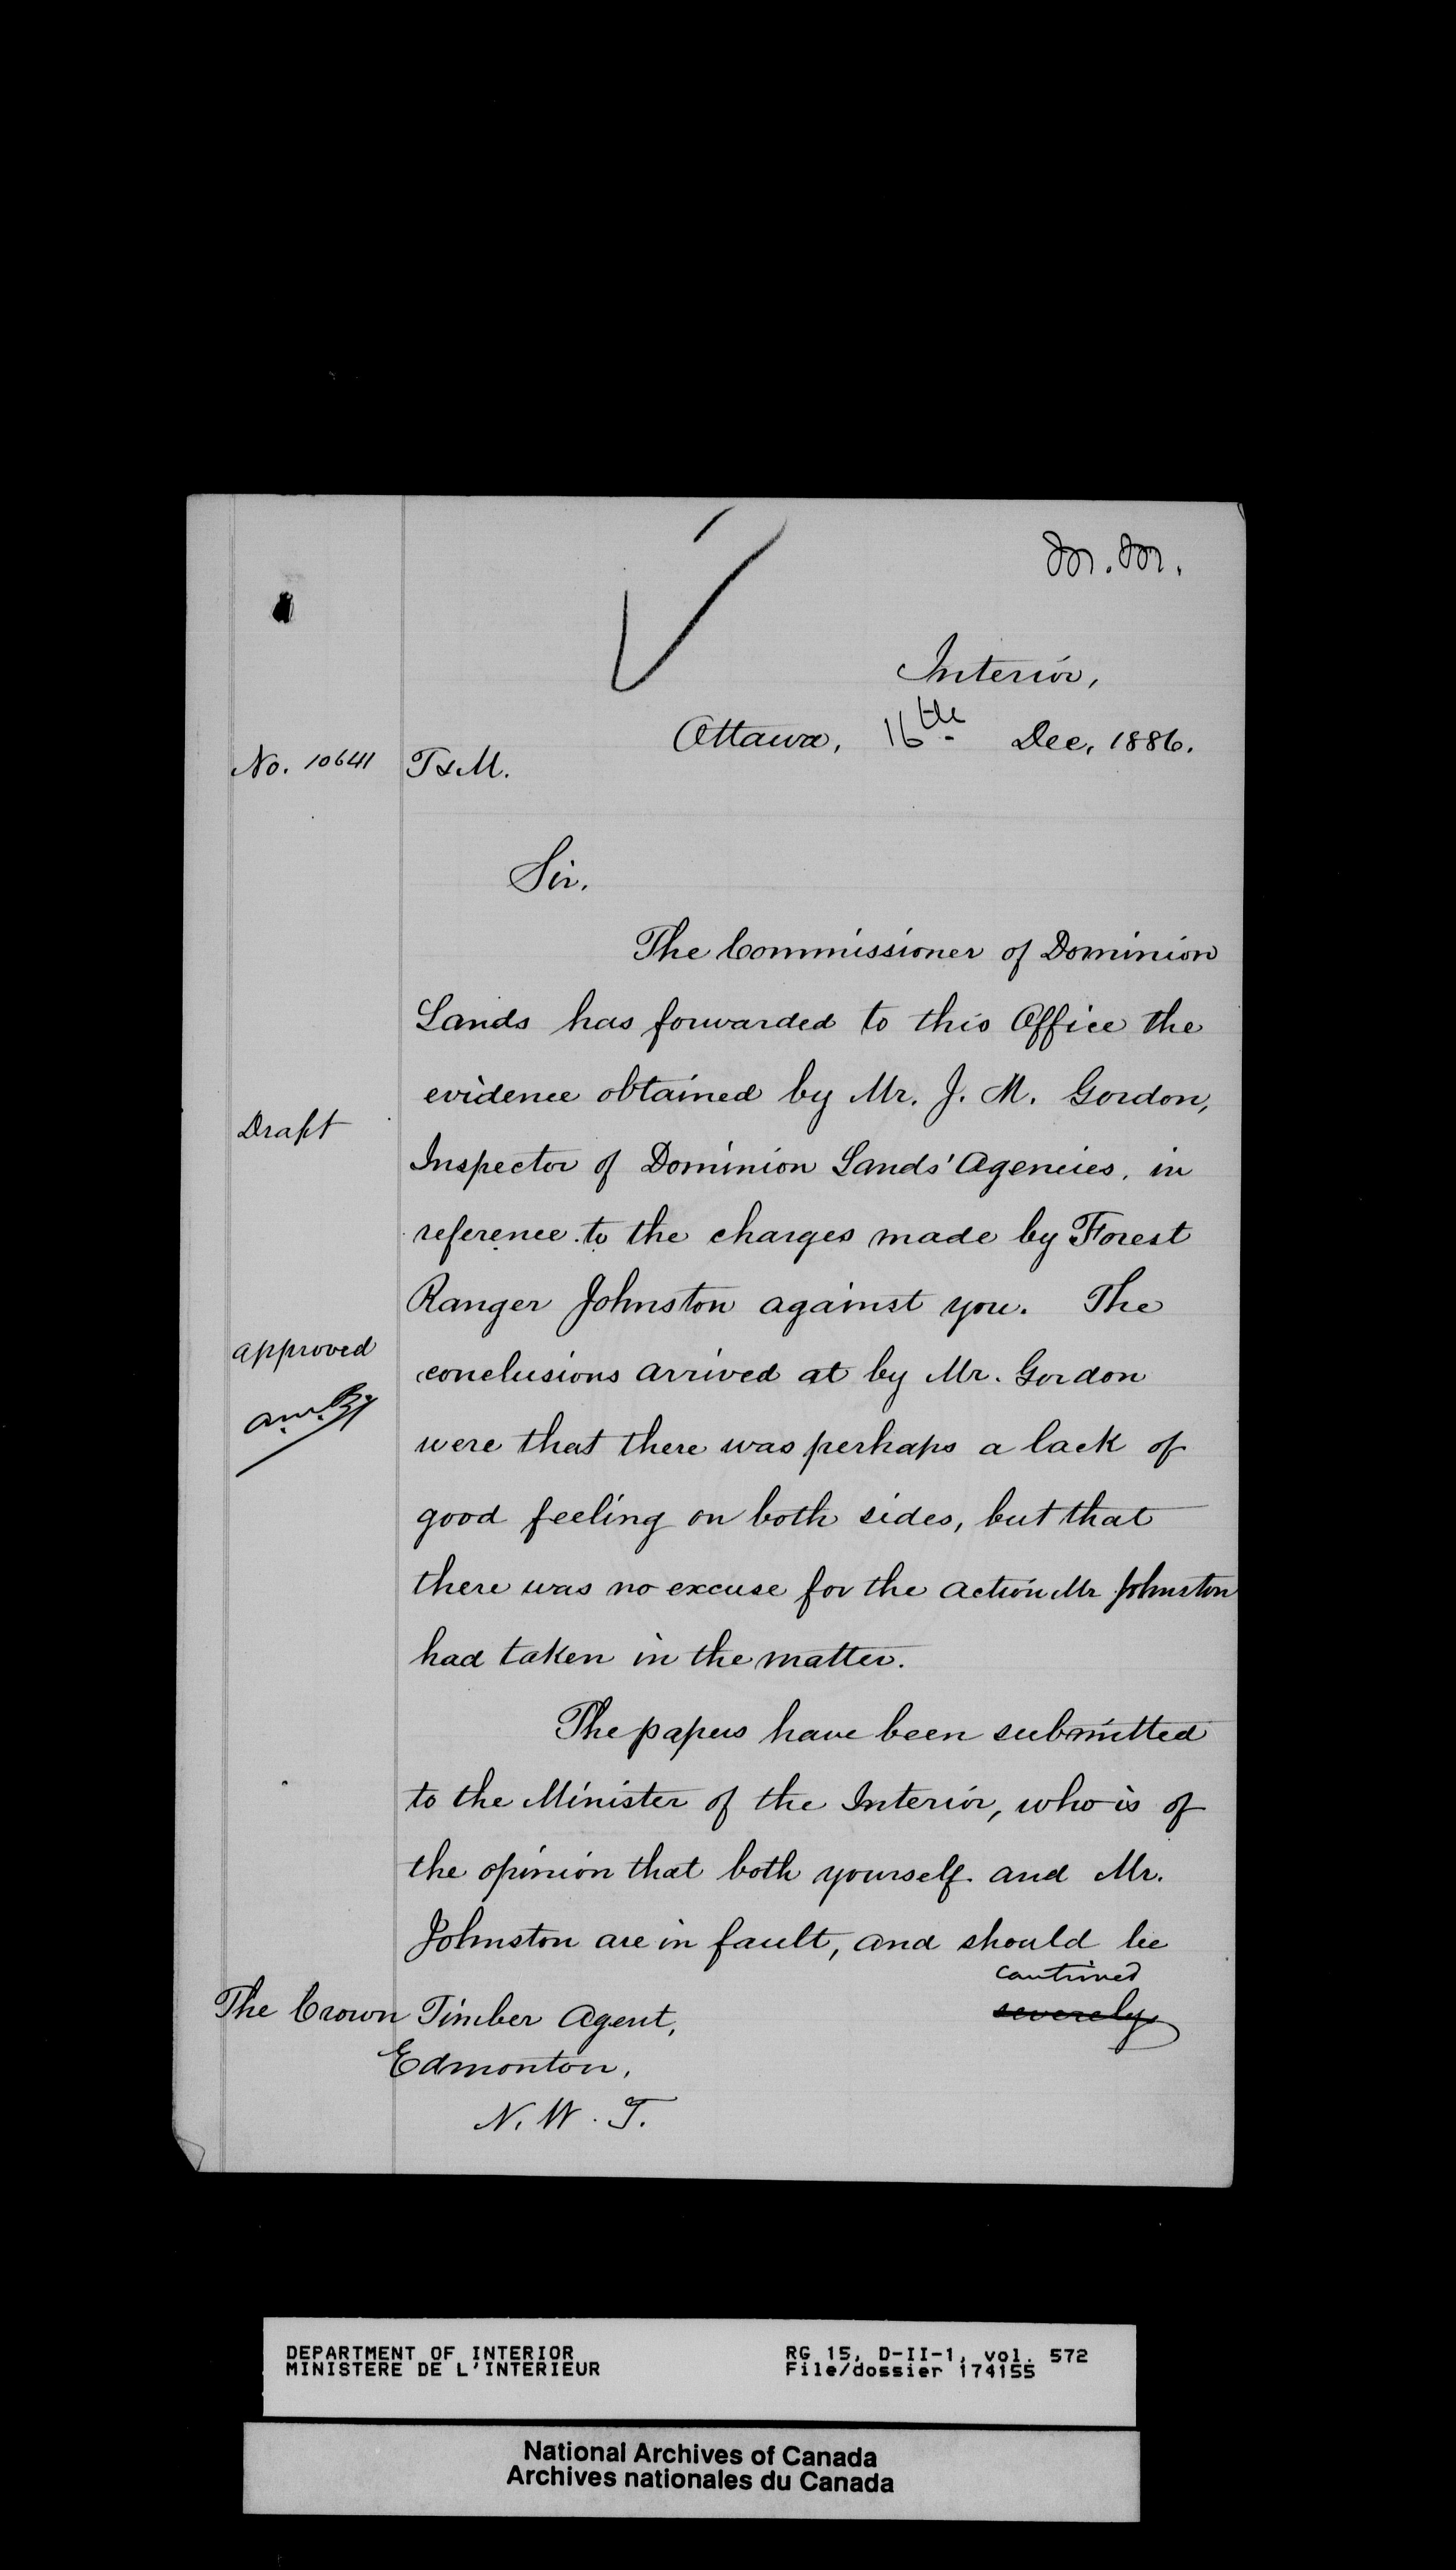 M.M.
Interior,
Ottawa, 16th Dec, 1886.
No. 10641 T&M.
Sir.
The Commissioner of Dominion
Lands has forwarded to this Office the
evidence obtained by Mr. J. M. Gordon,
Draft
Inspector of Dominion Lands' Agencies, in
reference to the charges made by Forest
Ranger Johnston against you. The
approved
conclusions arrived at by Mr. Gordon
were that there was perhaps a lack of
good feeling on both sides, but that
there was no excuse for the action Mr Johnston
had taken in the matter.
The papers have been submitted
to the Minister of the Interior, who is of
the opinion that both yourself and Mr.
Johnston are in fault, and should be
cautioned
severely
The Crown Timber Agent,
Edmonton,
N. W. T.
DEPARTMENT OF INTERIOR
MINISTERE DE L'INTERIEUR
RG 15, D-II-1, vol. 572
File/dossier 174155
National Archives of Canada
Archives nationales du Canada